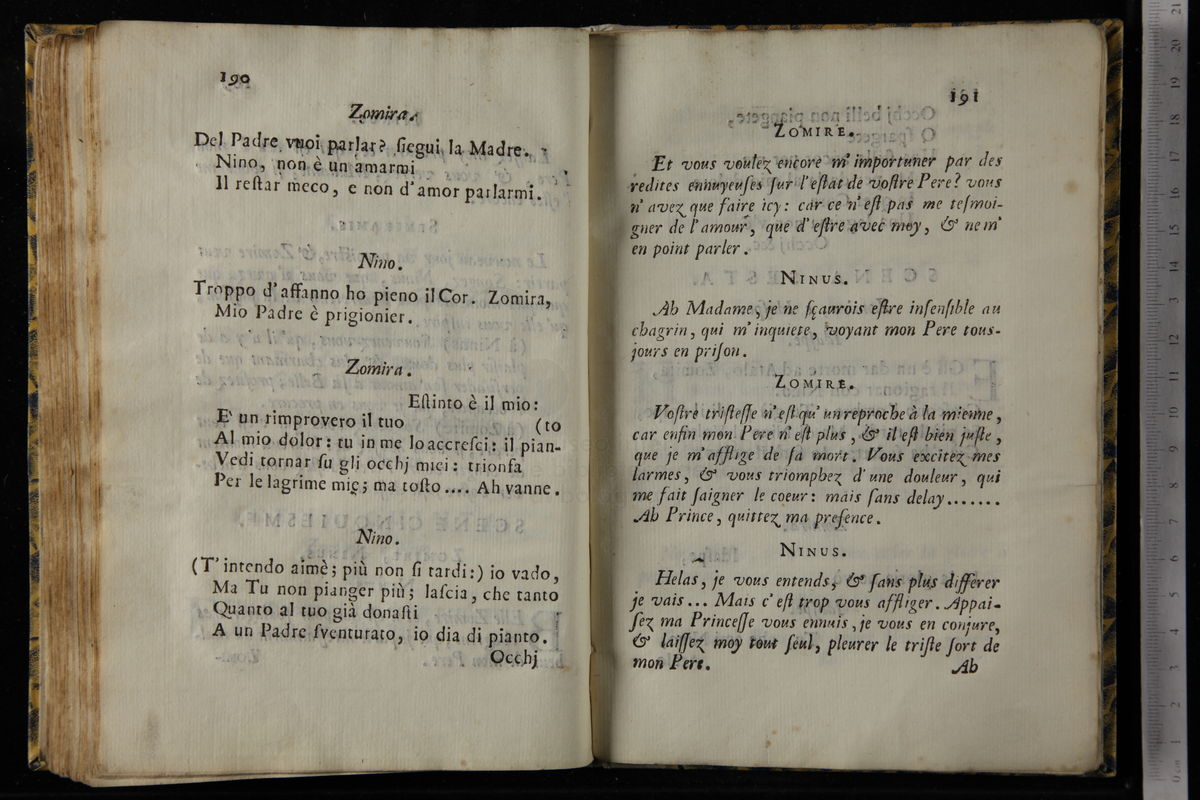 190
Zomira.
Del Padre vuoi parlar? ſiegui la Madre.
Nino, non è un' amarmi
Il reſtar meco, e non d'amor parlarmi.
Nino.
Troppo d'affanno ho pieno il Cor. Zomira,
Mio Padre è prigionier.
Zomira.
Eſtinto è il mio:
E' un rimprovero il tuo (to
Al mio dolor: tu in me lo accreſci: il pian-
Vedi tornar ſu gli occhj miei: trionfa
Per le lagrime mie; ma toſto .... Ah vanne.
Nino.
(T' intendo aimè; più non ſi tardi:) io vado,
Ma Tu non pianger più; laſcia, che tanto
Quanto al tuo già donaſti
A un Padre ſventurato, io dia di pianto.
Occhj
191
ZOMIRE.
Et vous voulez encore m' importuner par des
redites ennuyeuſes ſur l'eſtat de voſtre Pere? vous
n' avez que faire icy: car ce n' eſt pas me teſmoi-
gner de l'amour, que d'eſtre avec moy, & ne m'
en point parler.
NINUS.
Ah Madame, je ne ſçaurois eſtre inſenſible au
chagrin, qui m' inquiete, voyant mon Pere tous-
jours en priſon.
ZOMIRE.
Voſtre triſteſſe n' eſt qu' un reproche à la mienne,
car enfin mon Pere n' eſt plus, & il eſt bien juſte,
que je m' afflige de ſa mort. Vous excitez mes
larmes, & vous triomphez d' une douleur, qui
me fait ſaigner le coeur: mais ſans delay.......
Ah Prince, quittez ma preſence.
NINUS.
Helas, je vous entends, & ſans plus differer
je vais... Mais c' eſt trop vous affliger. Appai-
ſez ma Princeſſe vous ennuis, je vous en conjure,
& laiſſez moy tout ſeul, pleurer le triſte ſort de
mon Pere.
Ah